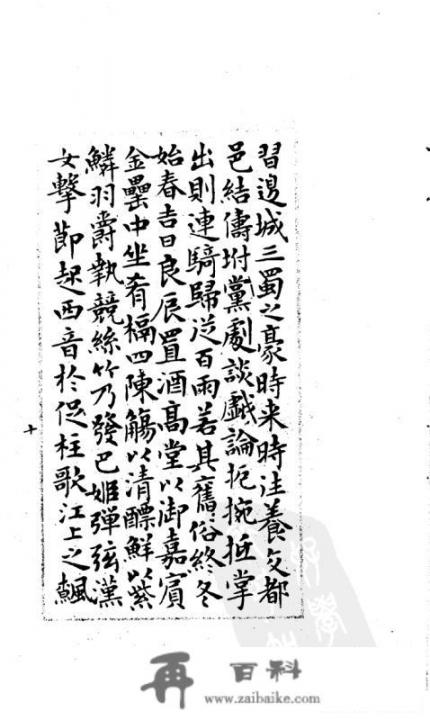 習邊城三蜀之豪時来時往養交都
邑結儔坿黨劇談戲論扼捥抵掌
出則連騎歸從百兩若其舊俗終冬
始春吉日良辰置酒髙堂以御嘉賓
金罍中坐肴槅四陳觴以清醥鮮以紫
鱗羽爵執競絲竹乃發巴姬彈弦漢
女擊節起西音於促柱歌江上之飊
十
再 百科
www.zaibaike.com